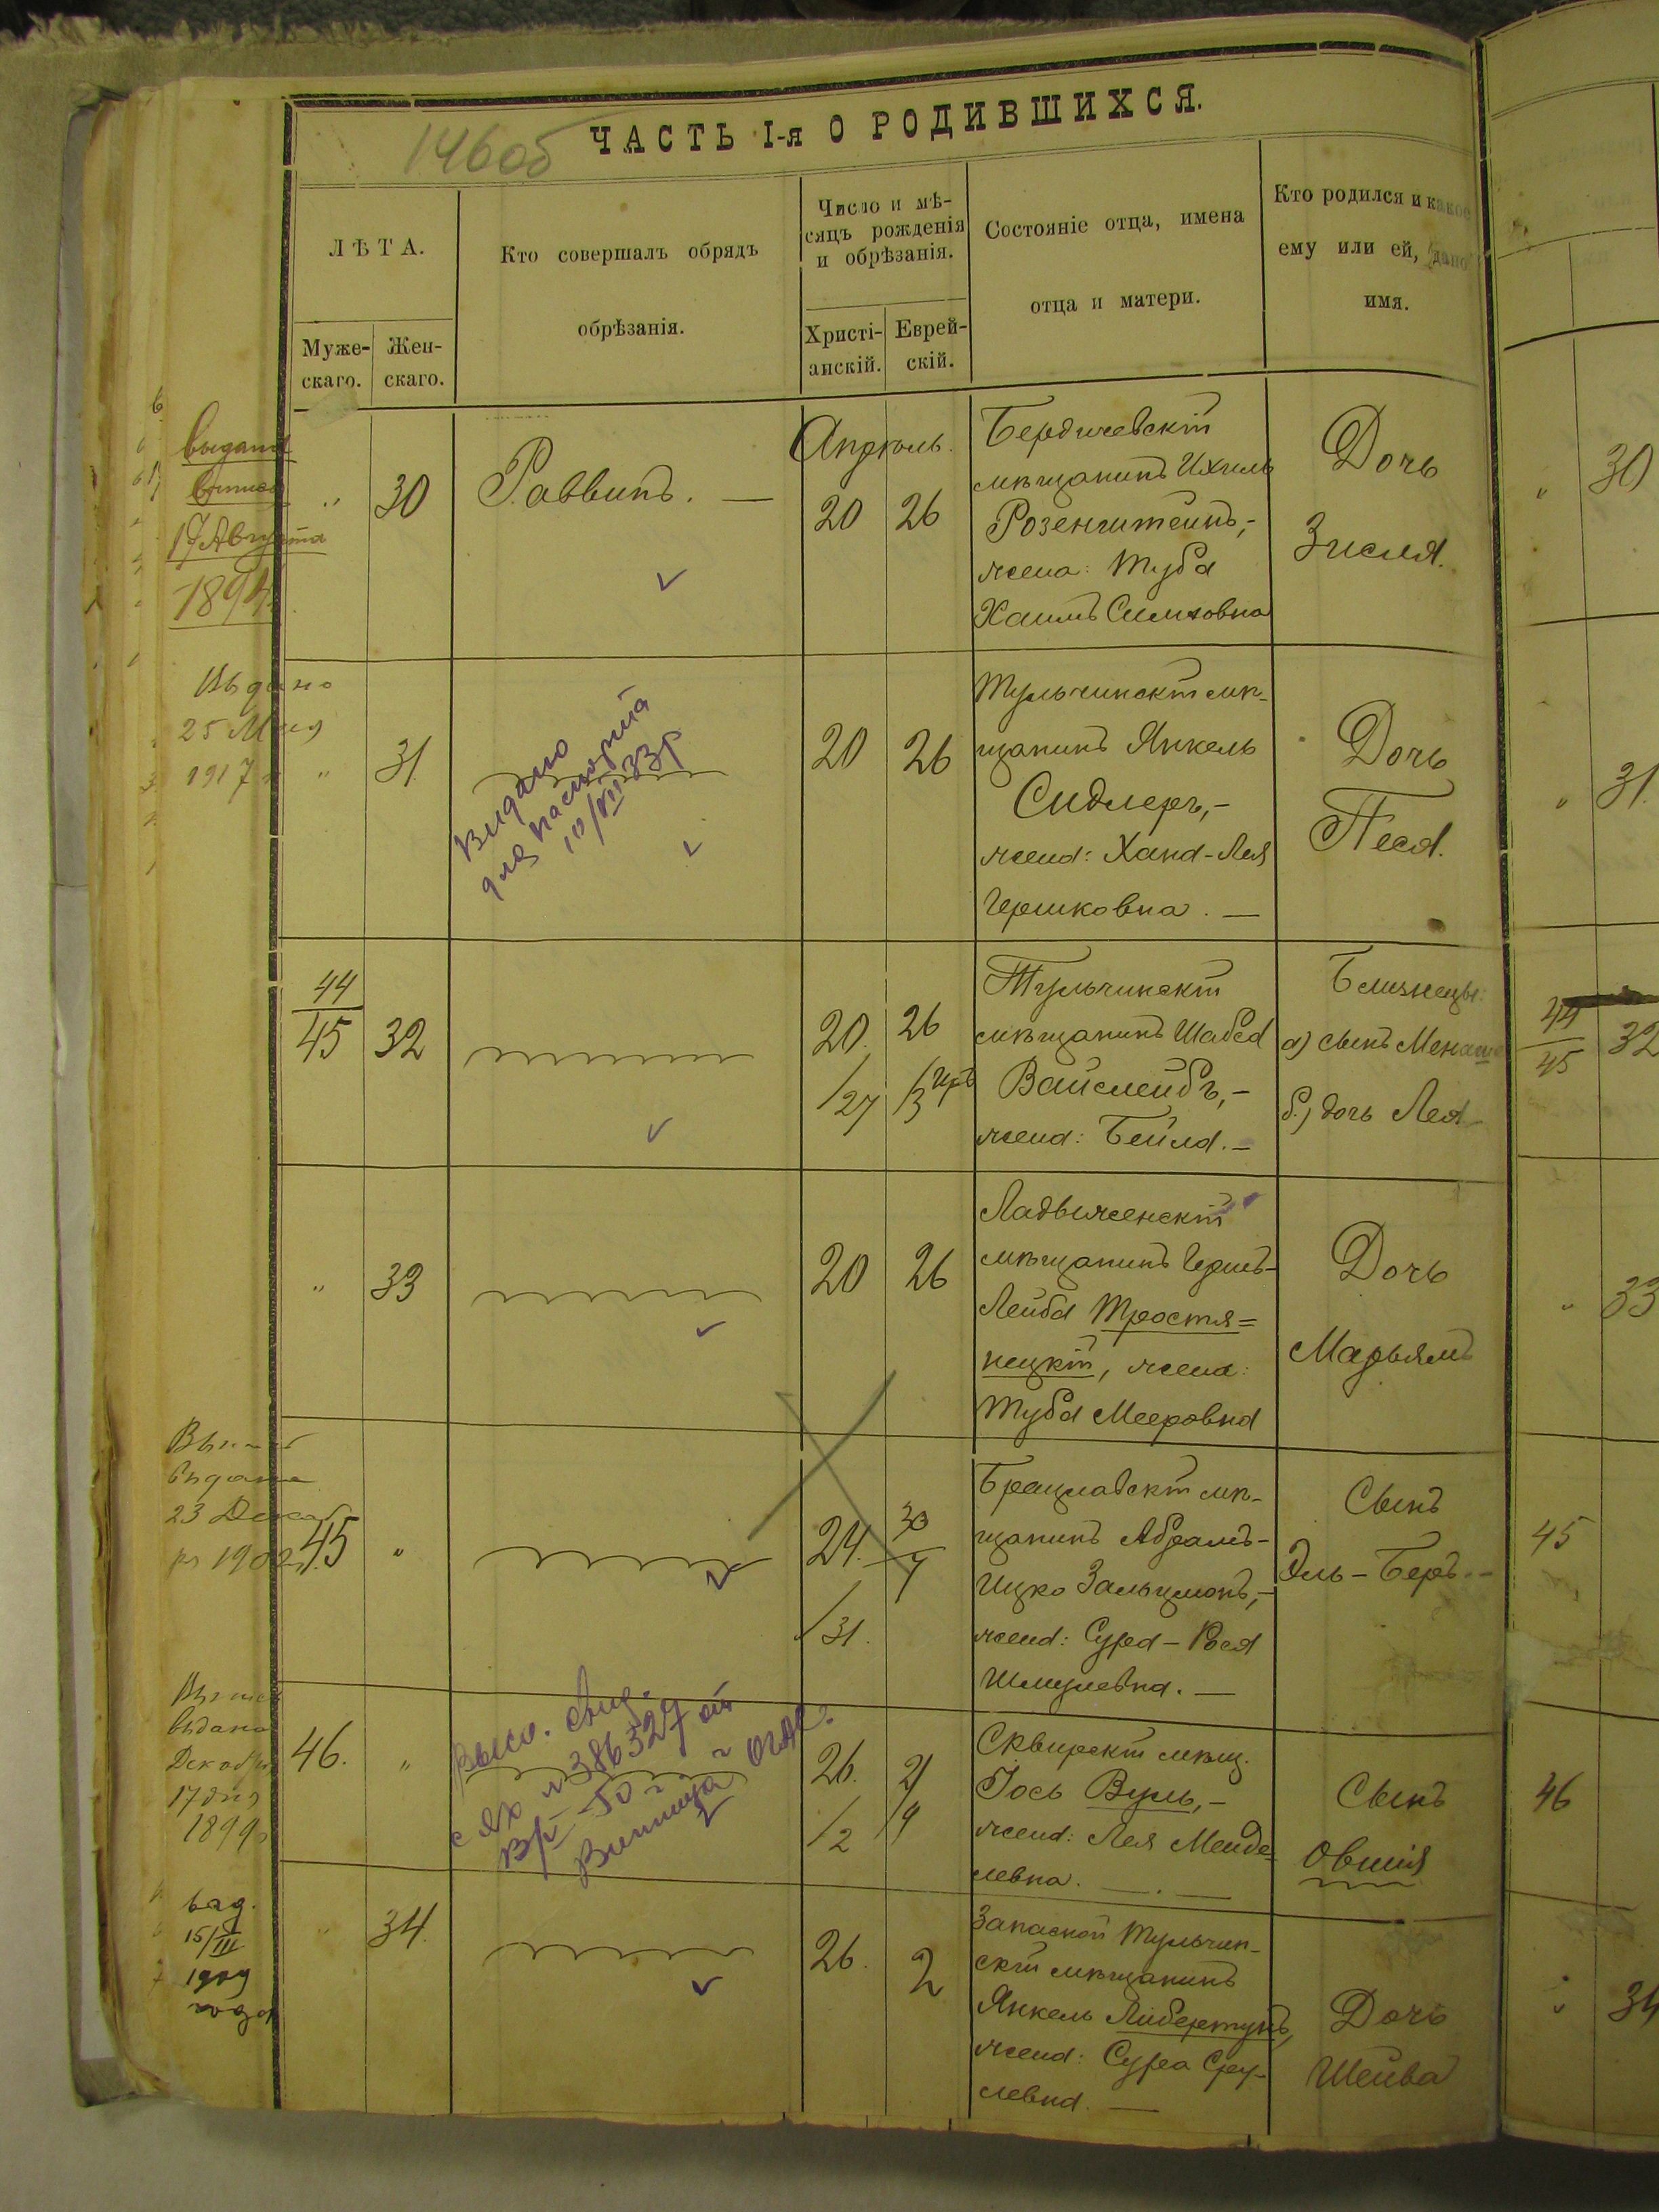 146об
ЧАСТЬ I-я О РОДИВШИХСЯ.
ЛѢТА.
Муже-
скаго.
Жен-
скаго.
Кто совершалъ обрядъ
обрѣзанія.
Число и мѣ-
сяцъ рожденія
и обрѣзанія.
Христі-
анскій.
Еврей-
скій.
Состояніе отца, имена
отца и матери.
Кто родился и какое
ему или ей, дано
имя.
17 Августа
1894
„
30
Раввинъ. —
Апрѣль.
20
26
Бердичевскій
мѣщанинъ Ихиль
Розенштейнъ,-
жена: Туба
Хаимъ Симховна
Дочь
Зисля.
30
Выдано
25 Мая
1917 г
„
31.
Видано
для паспорта
10/VII 33р
20
26
Тульчинскій мѣ-
щанинъ Янкель
Сидлеръ,-
жена: Хана-Лея
Гершковна. —
Дочь
Песя.
31.
44
45
32
20.
/27
26
/3
Тульчинскій
мѣщанинъ Шабса
Вайслейбъ,-
жена: Бейла. —
Близнецы:
а) сынъ Менаше
б.) дочь Лея
44
45
32
„
33
20
26
Ладыженскій
мѣщанинъ Гершъ-
Лейба Тростя=
нецкій, жена:
Туба Мееровна
Дочь
Марьямъ
33
выдана
23 Декаб
ря 1902
45
„
24.
/31.
30
7
Брацлавскій мѣ-
щанинъ Абрамъ-
Ицко Зальцманъ,-
жена: Сура-Рося
Шмулевна. —
Сынъ
Эль-Беръ. -
45
выдана
Декабря
17 дня
1899
46.
„
с ЯХ № 386327 от
26.
/2
2/
/9
Сквирскій мѣщ.
Іось Вуль,-
жена: Лея Менде=
левна. —.—
Сынъ
Овшія
46
вид.
15/III
1909
года
„
34.
26.
2
Запасной Тульчин-
скій мѣщанинъ
Янкель Либертунъ,
жена: Сура Сру-
левна. —
Дочь
Шейва
34